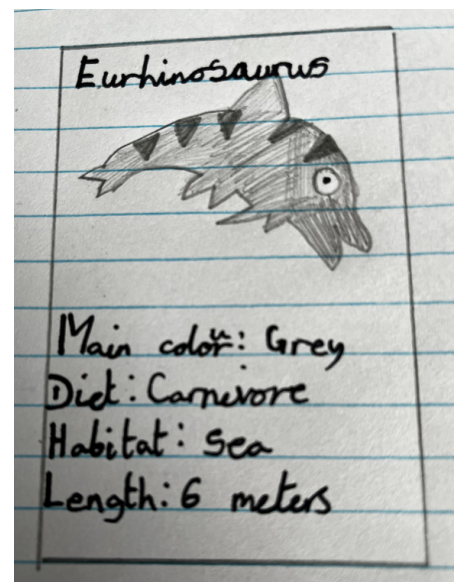 Eurhinosaurus
Main colour: Grey
Diet: Carnivore
Habitat: Sea
Length: 6 meters